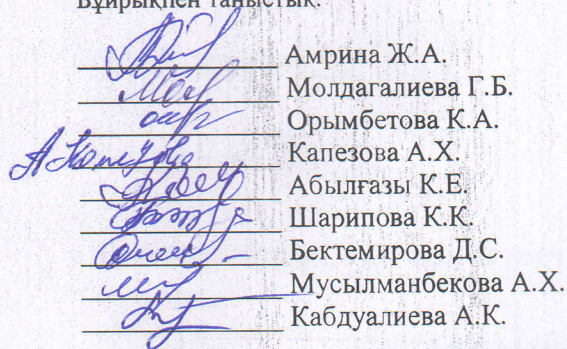 Бұйрықпен таныстық:
Амрина Ж.А.
Молдагалиева Г.Б.
Орымбетова К.А.
А Капезова Капезова А.Х.
Абылғазы К.Е.
Шарипова К.К.
Бектемирова Д.С.
Мусылманбекова А.Х.
Кабдуалиева А.К.